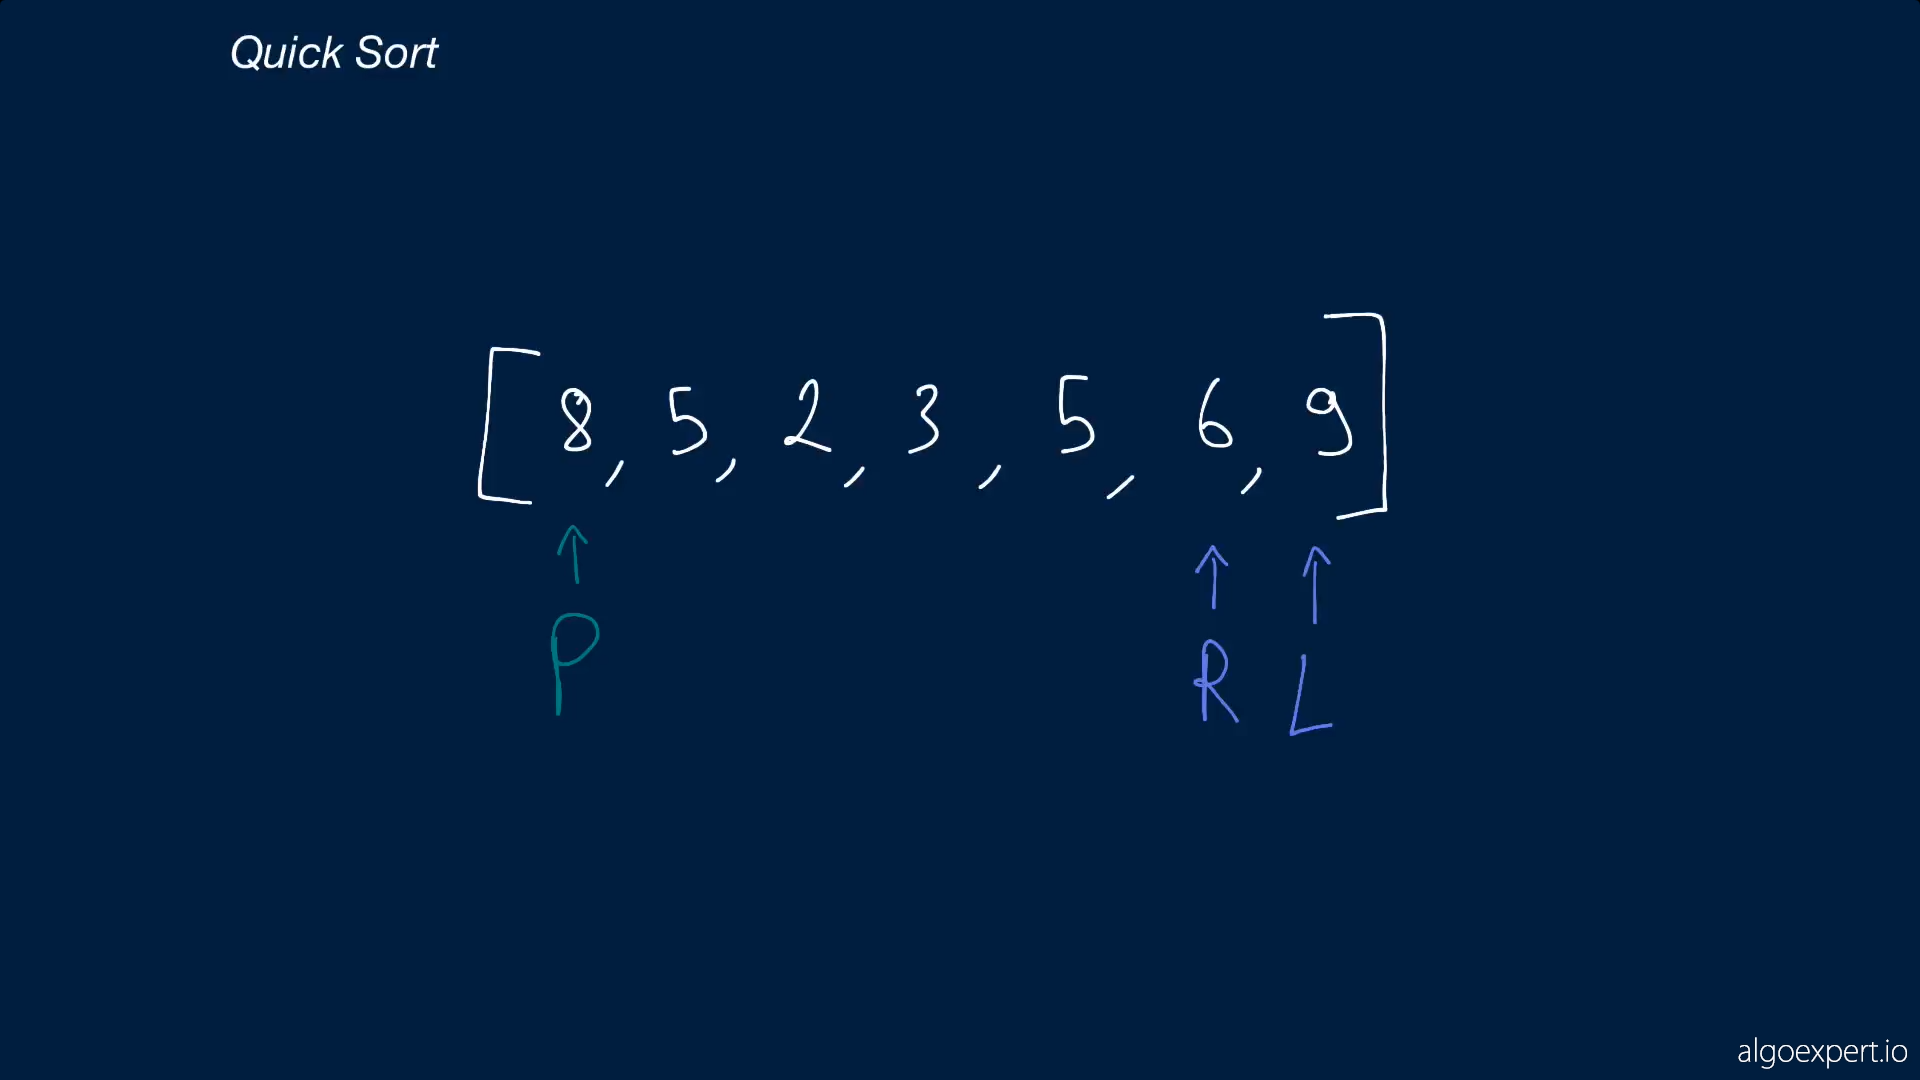 Quick Sort
[8, 5, 2, 3, 5, 6, 9]
P R L
algoexpert.io